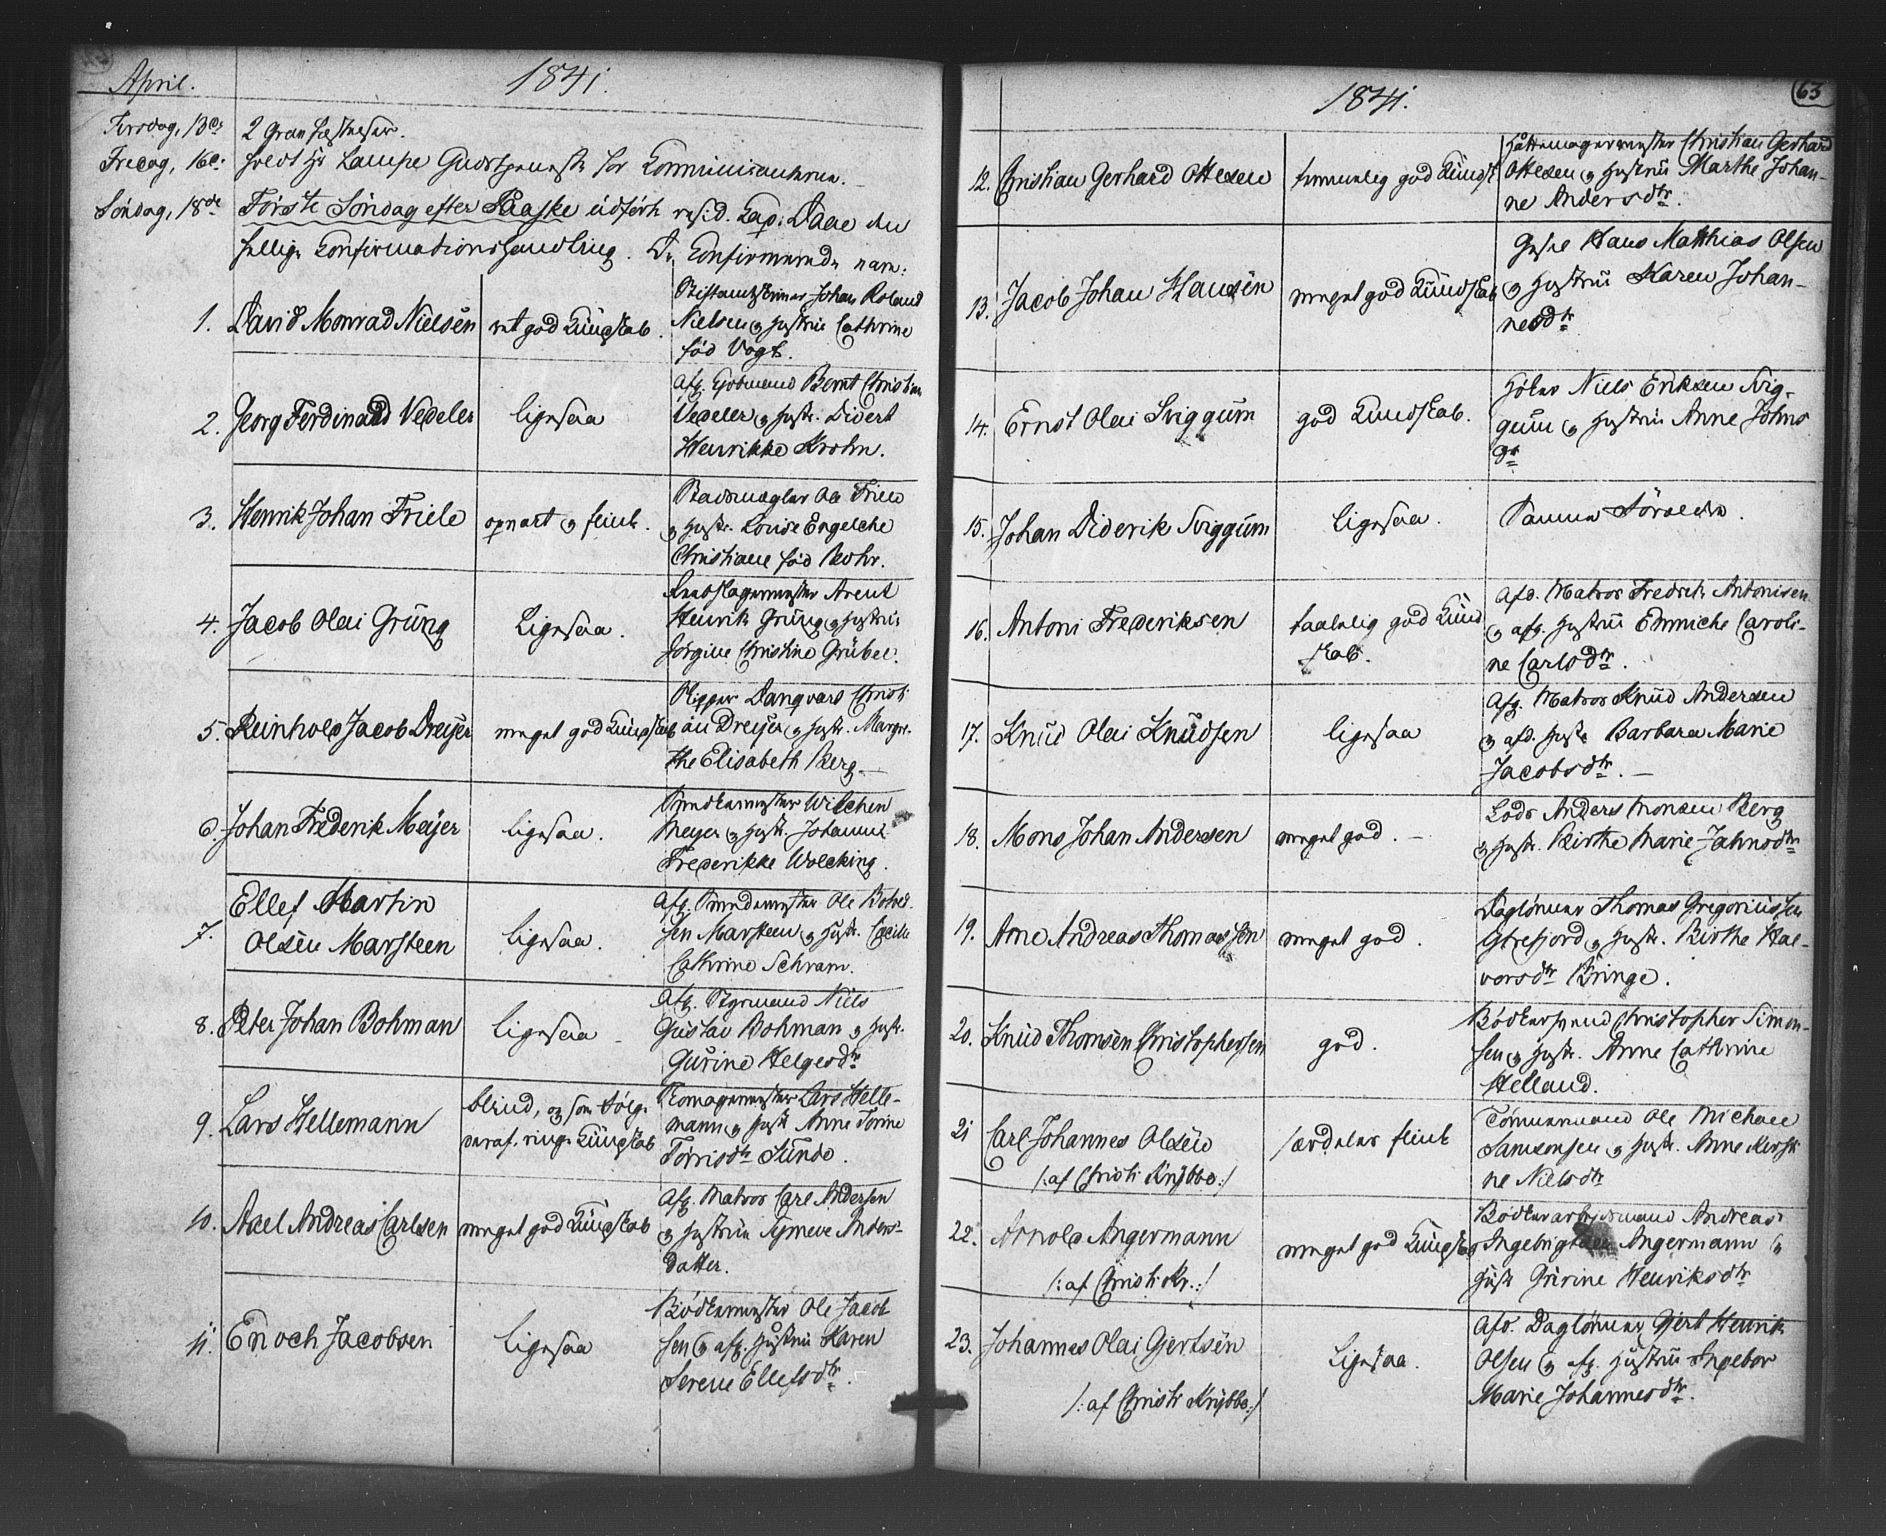 April.
1841.
Tirsdag, 13de
2 Gran
Fredag, 16e
holdt Hr Lampe Gudstjeneste for Communicanterne.
Søndag, 18de
Første Søndag efter Paaske udførte resid. Cap. Daae den
hellige Confirmationshandling. De Confirmerede vare:
1. David Monrad Nielsen
ret god Kundskab.
Stiftamtskriver Johan Roland
Nielsen og Hustrue Cathrine
fød Vogt.
2. Georg Ferdinand Vedeler
ligesaa
Afg. Bernt Christian
Vedeler og Hustr. Divert
Henrikke Krohn.
3. Henrik Johan Friele
opvakt og flink.
Stadsmægler Ole Friele
og Hustr. Louise Engelche
Christiane fød Rohr.
4. Jacob Olai Grung
Ligesaa.
Arent
Henrik Grung og Hustrue
Jørgine Christine Grübel.
5. Reinhold Jacob Dreyer
meget god Kundskab
Skipper Danqvard Christi
an Dreyer og Hustr. Margre-
the Elisabeth Berg.
6. Johan Frederik Meyer
ligesaa.
Smedkermester Wilchen
Meyer og Hustr. Johanne
Frederikke Wolcking.
7. Ellef Martin
Olsen Marsteen
ligesaa.
Afg. Ole Botved-
sen Marsteen og Hustr. Cecilie
Cathrine Schram.
8. Peter Johan Bohman
Ligesaa
Afg. Styrmand Niels
Gustav Bohman og Hustr.
Gurine Helgesdtr
9. Lars Hellemann
blind, og som Følge
deraf ringe Kundskab
Skomagermester Lars Helle-
mann og Hustr Anne Torine
Torrisdtr Sunde.
10. Axel Andreas Carlsen
meget god Kundskab
Afg. Matros Carl Andersen
og Hustrue Synneve Anders-
datter.
11. Enoch Jacobsen
Ligesaa
Bødkermester Ole Jacob
sen og afg. Hustrue Karen
Serene Ellefsdtr.
1841.
63
12. Christian Gerhard Ottesen
temmelig god Kundsk
Hattemagermester Christian Gerhard
Ottesen og Hustrue Marthe Johan-
ne Andersdtr.
13. Jacob Johan Hansen
meget god Kundskab
Hans Matthias Olsen
og Hustrue Karen Johan-
nesdtr
14. Ernst Olai Sviggum
god Kundskab.
Høker Niels Eriksen Svig-
gum og Hustrue Anne Johns
dr
15. Johan Diderik Sviggum
ligesaa.
Samme Forældre.
16. Antoni Frederiksen
taalelig god Kund
skab.
Afd. Matros Fredrik Antonisen
og afg. Hustrue Emniche Caroli-
ne Carlsdtr.
17. Knud Olai Knudsen
ligesaa
Afg. Matros Knud Andersen
og afd. Hustr Barbara Marie
Jacobsdtr.
18. Mons Johan Andersen
meget god.
Lods Anders Monsen Berg
og Hustr. Birthe Marie Jahnsdtr
19. Arne Andreas Thomassen
meget god.
Daglønner Thomas Gregoriussen
Ytrefjord og Hustr. Birthe Hal-
vorsdtr Bringe.
20. Knud Thomsen Christophersen
god.
Bødkersvend Christopher Simon-
sen og Hustr. Anne Cathrine
Helland.
21 Carl Johannes Olsen
/:af Christi Krybbe:/
særdeles flink
Tømmermand Ole Michael
Samsonsen og Hustr. Anne Kirsti
ne Nielsdtr
22. Arnold Angermann
/:af Christi Kr.:/
meget god Kundskab
Bødkerarbejdsmand Andreas
Ingebrigtsen Angermann og
Hustr Gurine Henriksdtr
23. Johannes Olai Gjertsen
/:af Christi Krybbe:/
Ligesaa.
Afd. Daglønner Gjert Henrik
Olsen og afg. Hustrue Ingebor
Marie Johannesdtr.